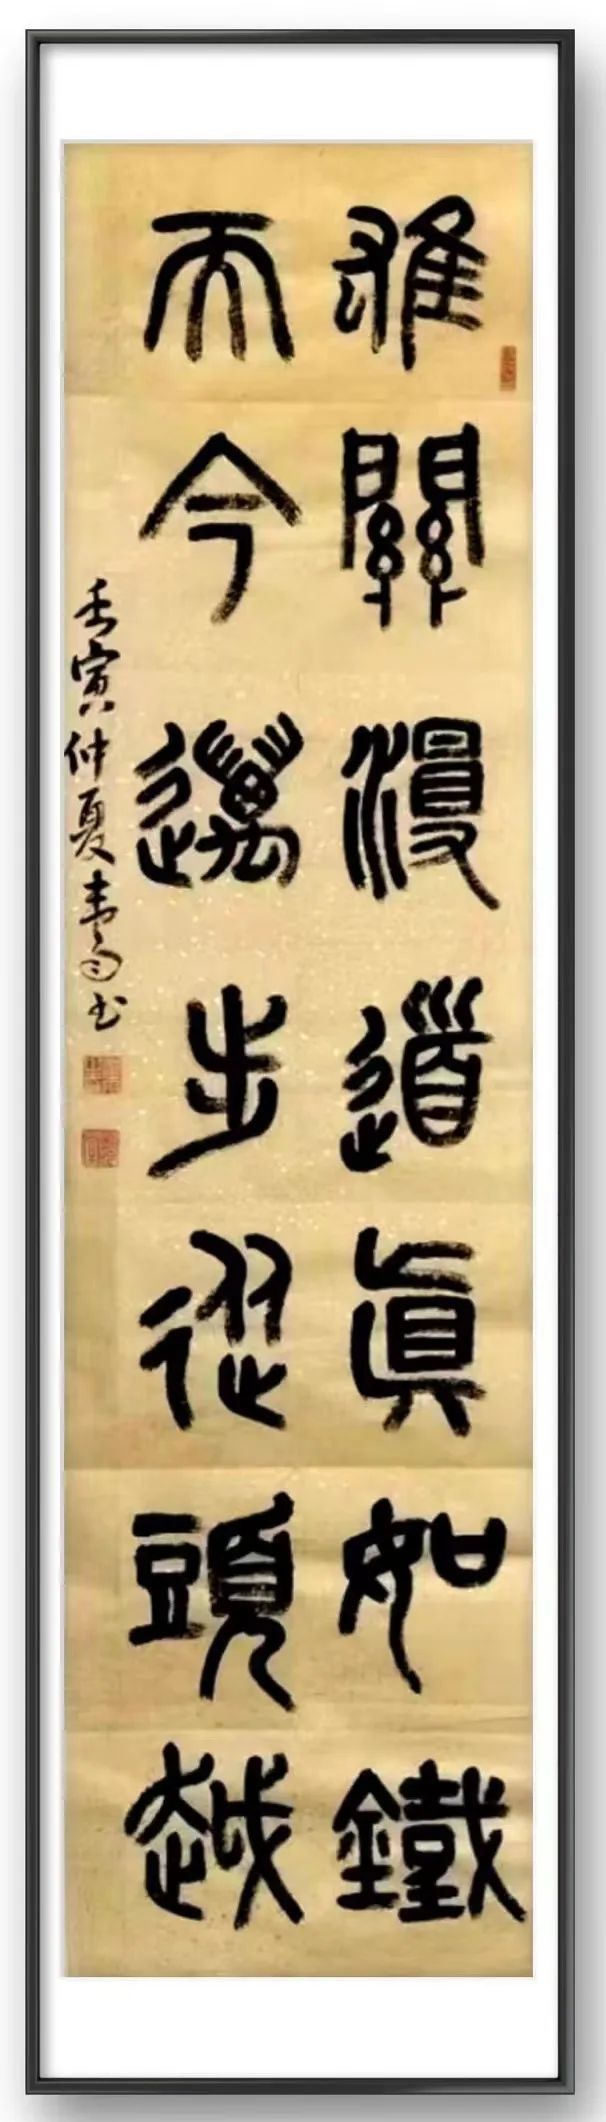 雄關漫道眞如鐵
而今邁步從頭越
壬寅仲夏书